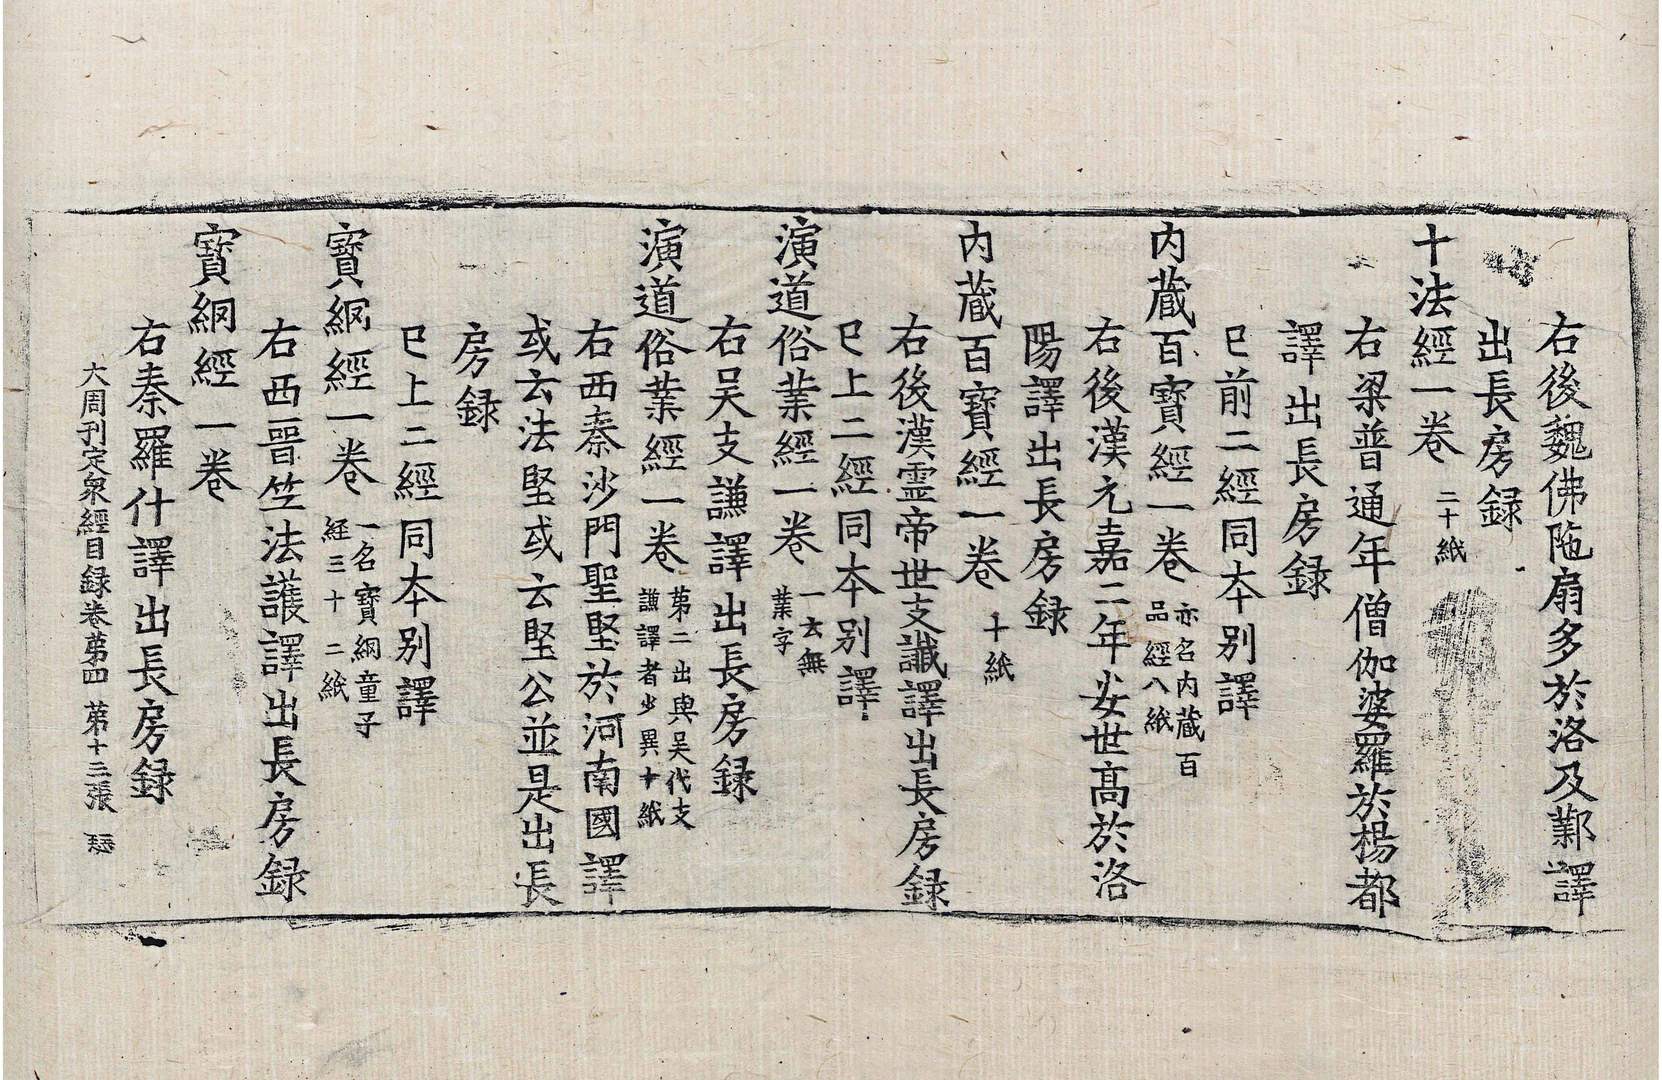 右後魏佛陁扇多於洛及鄴譯
出長房録
十法經一卷 二十紙
右梁普通年僧伽婆羅於楊都
譯出長房録
已前二經同本別譯
内蔵百寳經一卷 亦名内蔵百
品經八紙
右後漢元嘉二年安世髙於洛
陽譯出長房録
内蔵百寳經一卷 十紙
右後漢霊帝世支讖譯出長房録
已上二經同本別譯
演道俗業經一卷 一云無
業字
右吴支謙譯出長房録
演道俗業經一卷 苐二出與吴代支
謙譯者少異十紙
右西秦沙門聖堅於河南國譯
或云法堅或云堅公並是出長
房録
已上二經同本別譯
寳網經一卷 一名寳網童子
經三十二紙
右西晉竺法護譯出長房録
寳網經一卷
右秦羅什譯出長房録
大周刊定衆經目録卷苐四 苐十三張